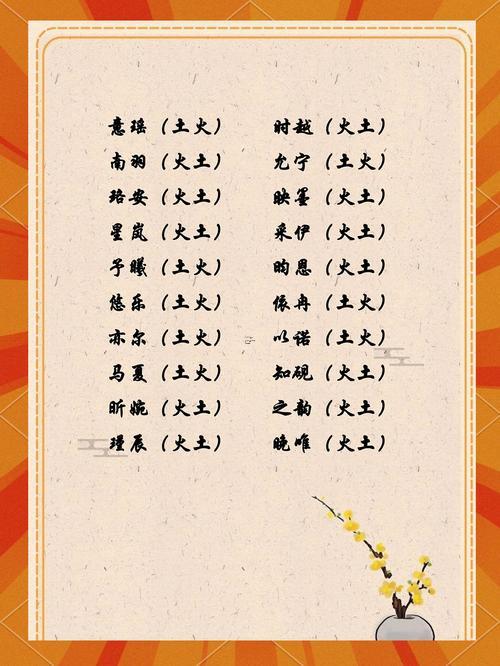 意瑶（土火） 时越（火土）
南羽（火土） 允宁（火土）
珞安（火土） 映墨（火土）
星岚（火土） 采伊（火土）
予曦（土火） 昀恩（火土）
悠乐（土火） 依冉（火土）
亦尔（土火） 以诺（火土）
马夏（土火） 知砚（火土）
昕婉（火土） 之韵（火土）
瑾辰（火土） 晚唯（火土）